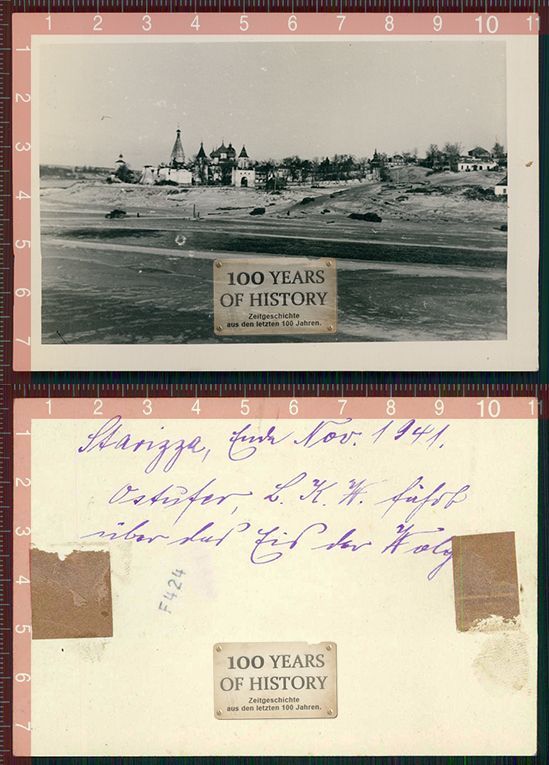 1 2 3 4 5 6 7 8 9 10 11
1
2
3
4
5
6
7
100 YEARS
OF HISTORY
Zeitgeschichte
aus den letzten 100 Jahren.
1 2 3 4 5 6 7 8 9 10 11
1
2
3
4
5
6
7
Starizza, Ende Nov. 1941.
Ostufer, L. K. W. fährt
über das Eis der Wolg
F424
100 YEARS
OF HISTORY
Zeitgeschichte
aus den letzten 100 Jahren.